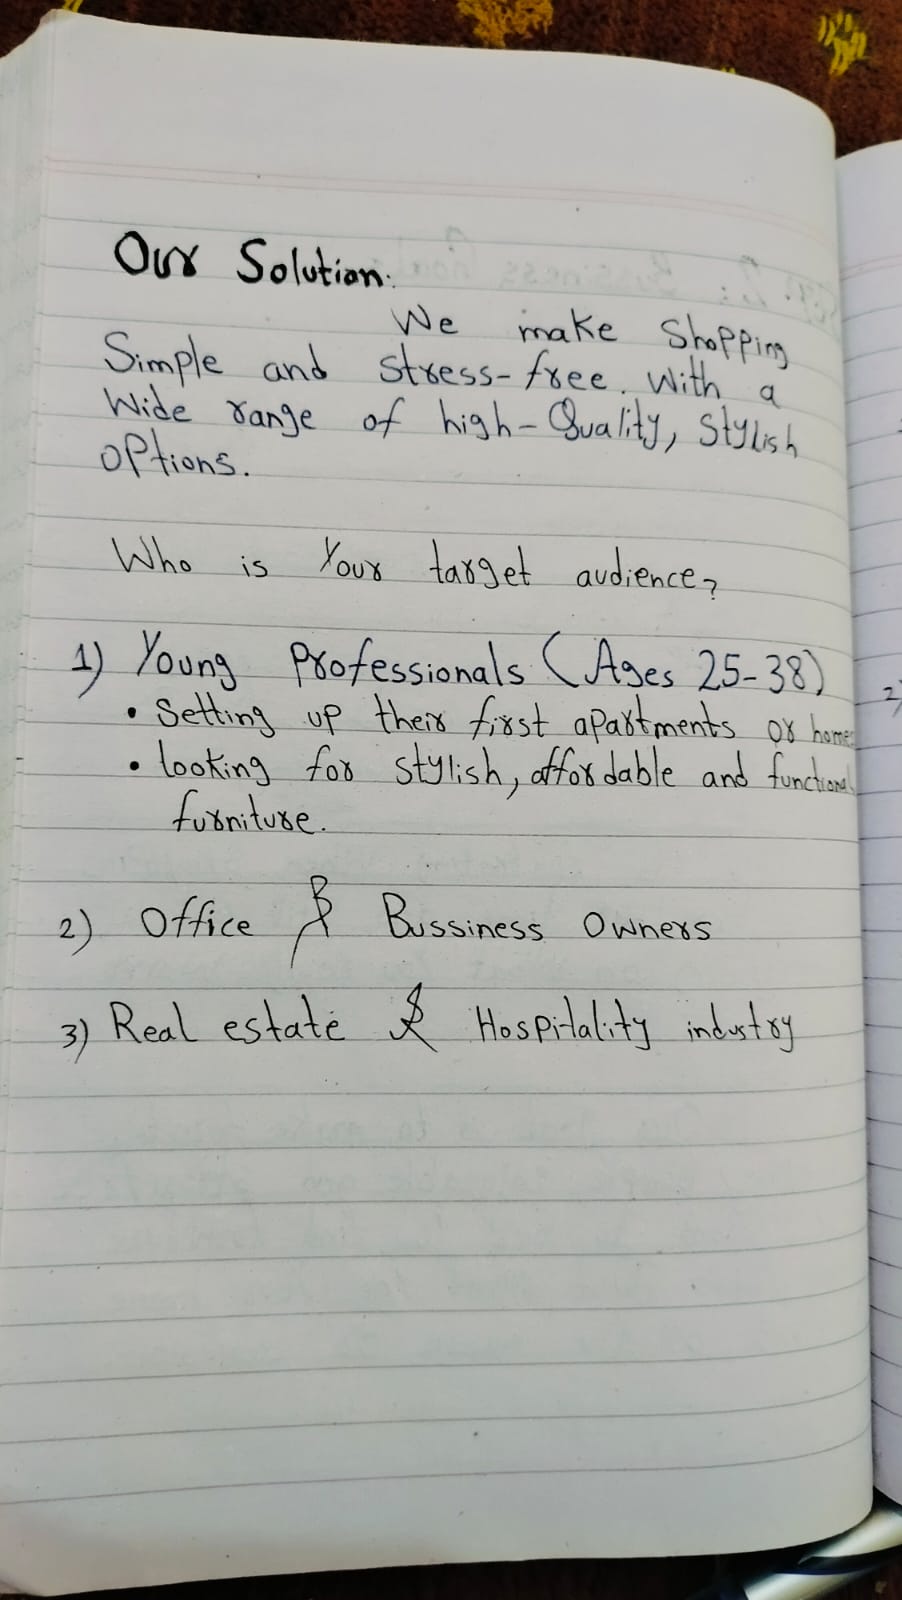 Our Solution:
We make Shopping
Simple and stress-free. With a
Wide range of high-Quality, Stylish
options.
Who is Your target audience?
1) Young Professionals (Ages 25-38)
• Setting up their first apartments or homes
• looking for stylish, affordable and functional
furniture.
2) Office & Bussiness Owners
3) Real estate & Hospitality industry
2)